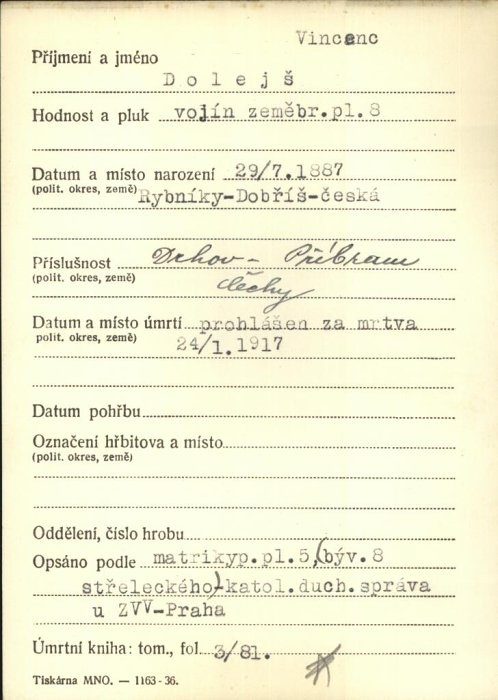 Vincenc
Příjmení a jméno
Dolejš
Hodnost a pluk vojín zeměbr.pl.8
Datum a místo narození 29/7.1887
(polit. okres, země) Rybníky-Dobříš-česká
Příslušnost Drhov - Příbram
(polit. okres, země) Čechy
Datum a místo úmrtí prohlášen za mrtva
polit. okres, země) 24/1.1917
Datum pohřbu
Označení hřbitova a místo
(polit. okres, země)
Oddělení, číslo hrobu
Opsáno podle matrikyp.pl.5,(býv.8
střeleckého)-katol.duch.správa
u ZVV-Praha
Úmrtní kniha: tom., fol. 3/81.
Tiskárna MNO. — 1163-36.